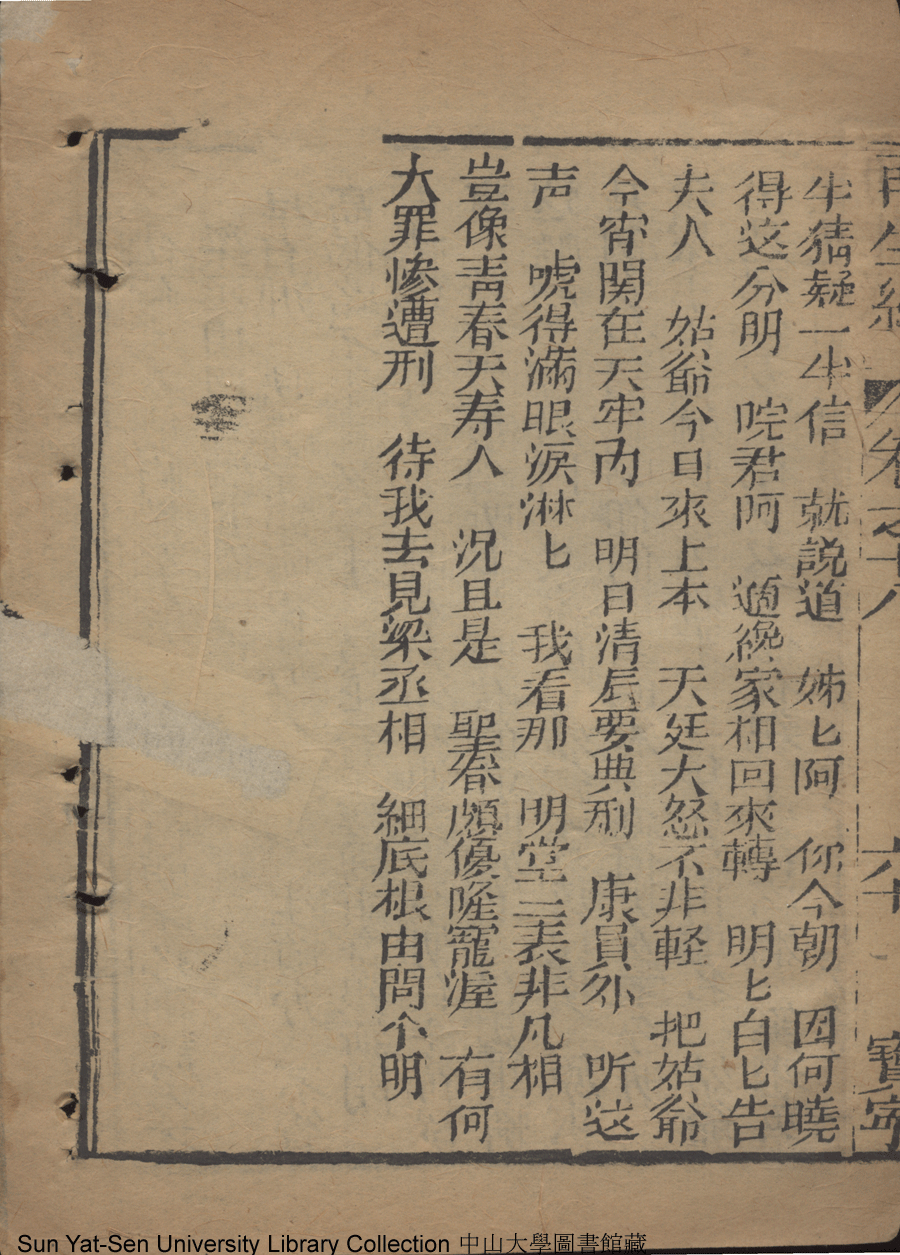 再生緣 卷之十八 六十 寶寧
半猜疑一半信 就說道 姊匕阿 你今朝 因何曉
得这分明 院君阿 適纔家相回來轉 明匕白匕告
夫人 姑爺今日來上本 天廷大怒不非軽 把姑爺
今宵関在天牢內 明日清辰要典刑 康員外 听这
声 唬得滿眼淚淋匕 我看那 明堂二表非凡相
豈像青春夭寿人 況且是 聖眷頗優隆寵渥 有何
大罪慘遭刑 待我去見梁丞相 細底根由問个明
Sun Yat-Sen University Library Collection 中山大學圖書館藏